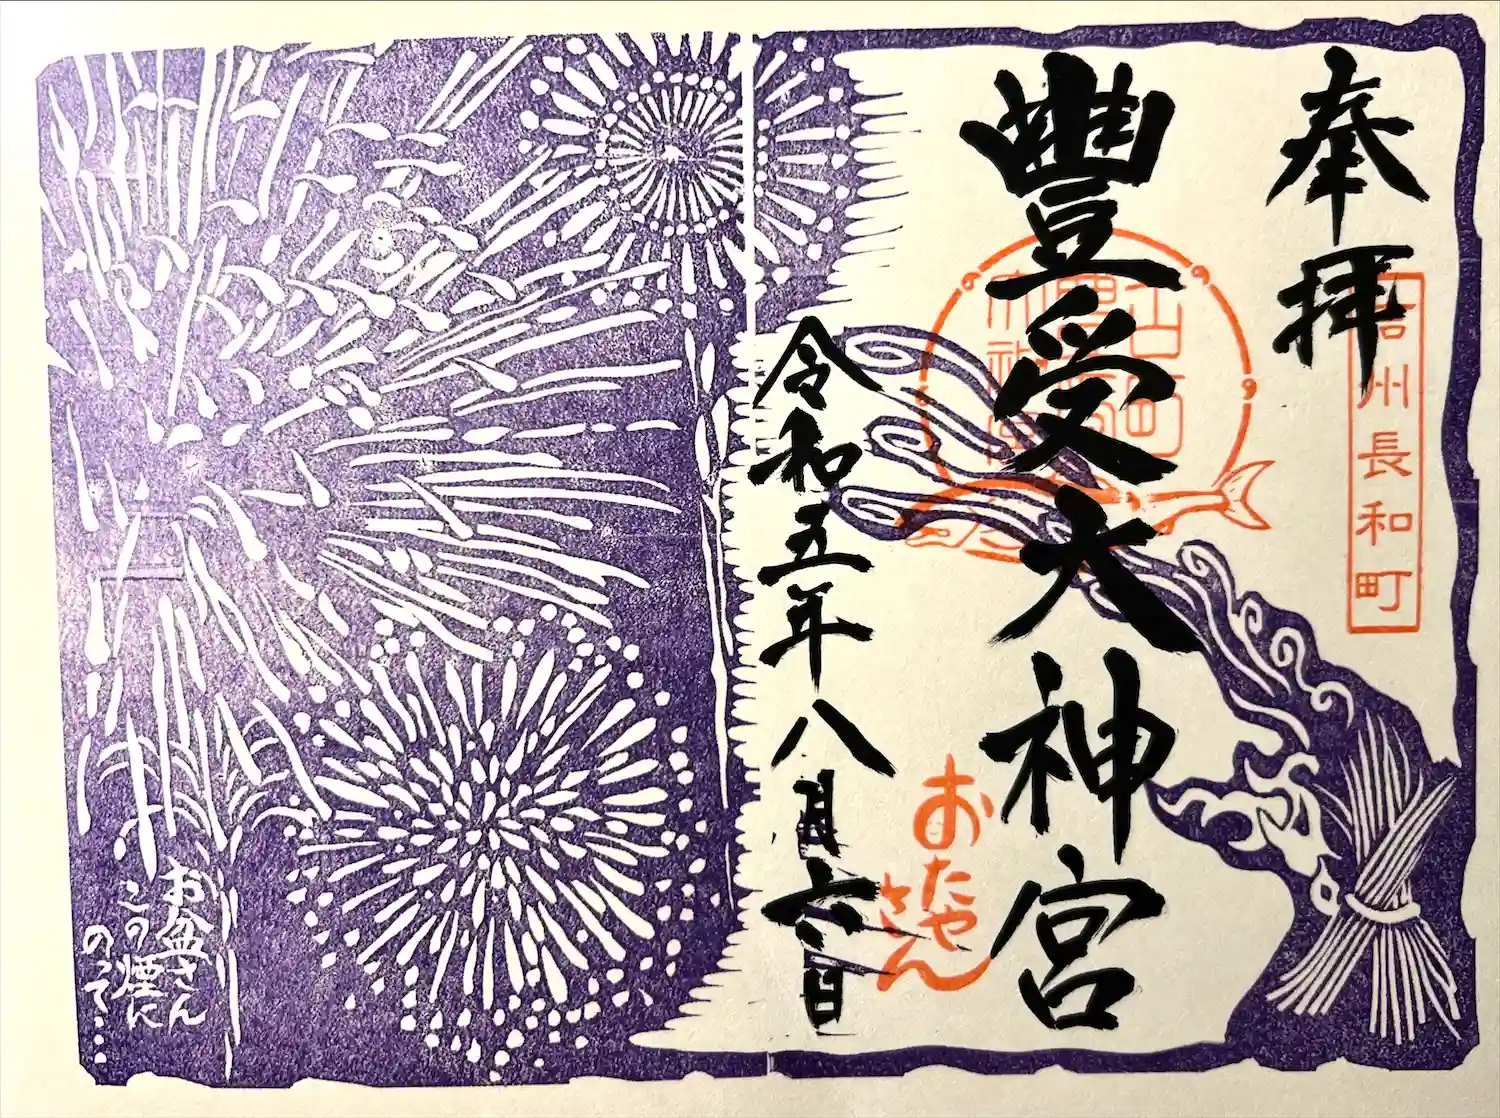 奉拝
信州長和町
豊受大神宮
おたや
さん
令和五年八月六日
お盆さん
この煙に
のって…